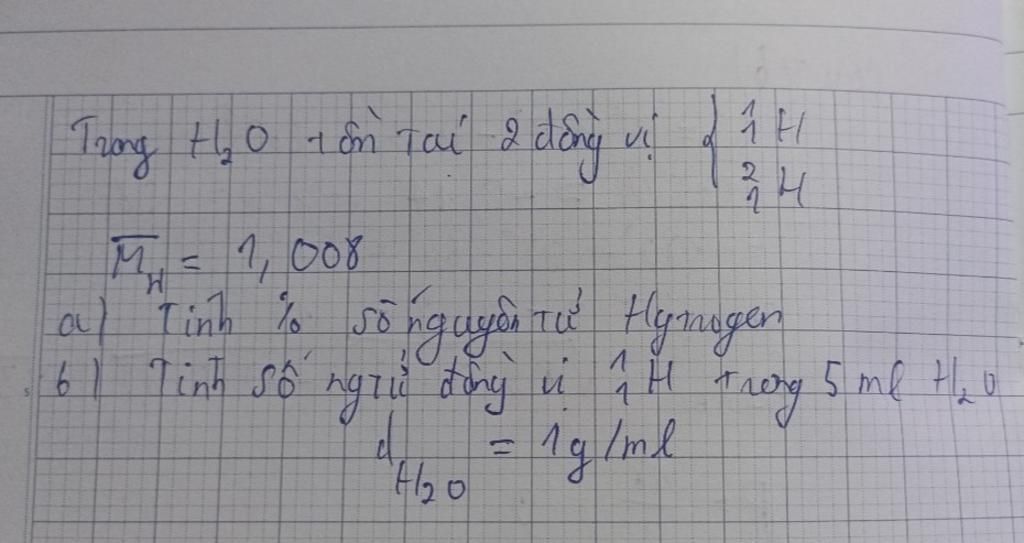 Trong H₂O tồn tại 2 đồng vị { ¹₁H
²₁H
M̅_H = 1,008
a) Tính % số nguyên tử Hynogen
b) Tính số ngtử đồng vị ¹₁H trong 5 ml H₂O
d_H₂O = 1g/ml